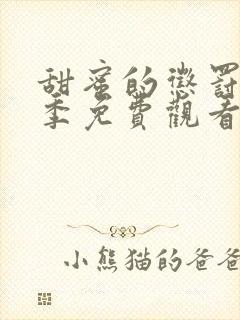 甜蜜的懲罰
季免費觀看
小熊猫的爸爸